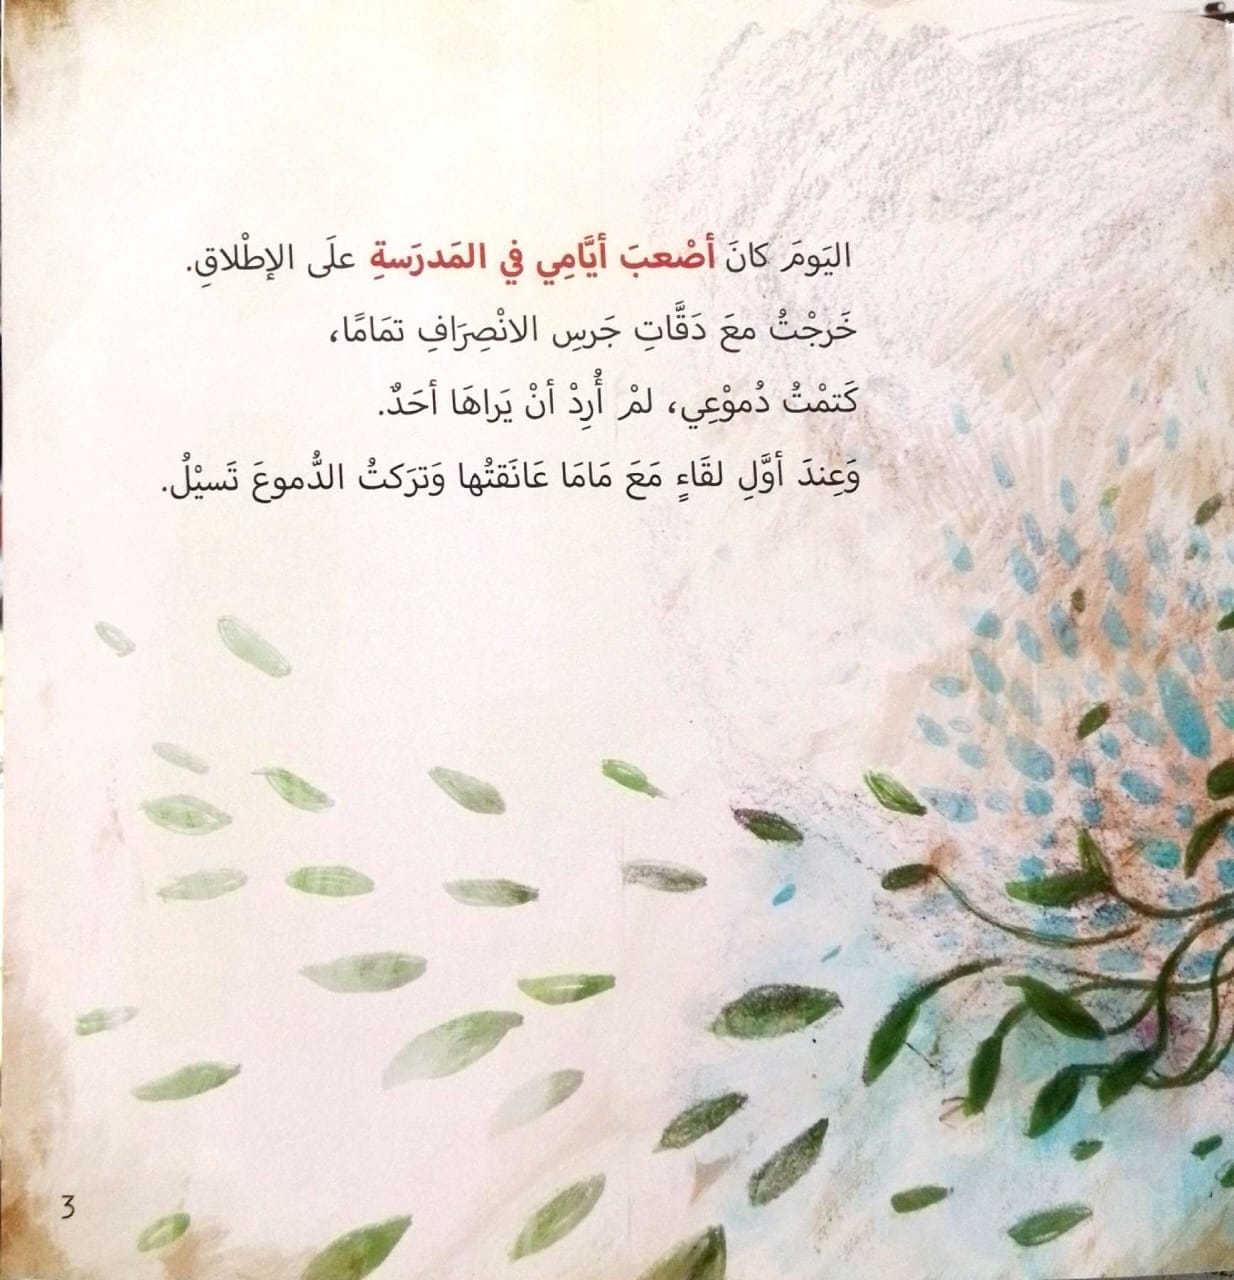 اليَومَ كانَ أصْعبَ أيَّامِي في المَدرَسةِ علَى الإطْلاقِ.
خَرجْتُ معَ دَقَّاتِ جَرسِ الانْصِرَافِ تمَامًا،
كَتمْتُ دُموْعِي، لمْ أُرِدْ أنْ يَراهَا أحَدٌ.
وَعِندَ أوَّلِ لقَاءٍ مَعَ مَامَا عَانَقتُها وَترَكتُ الدُّموعَ تَسيْلُ.
3